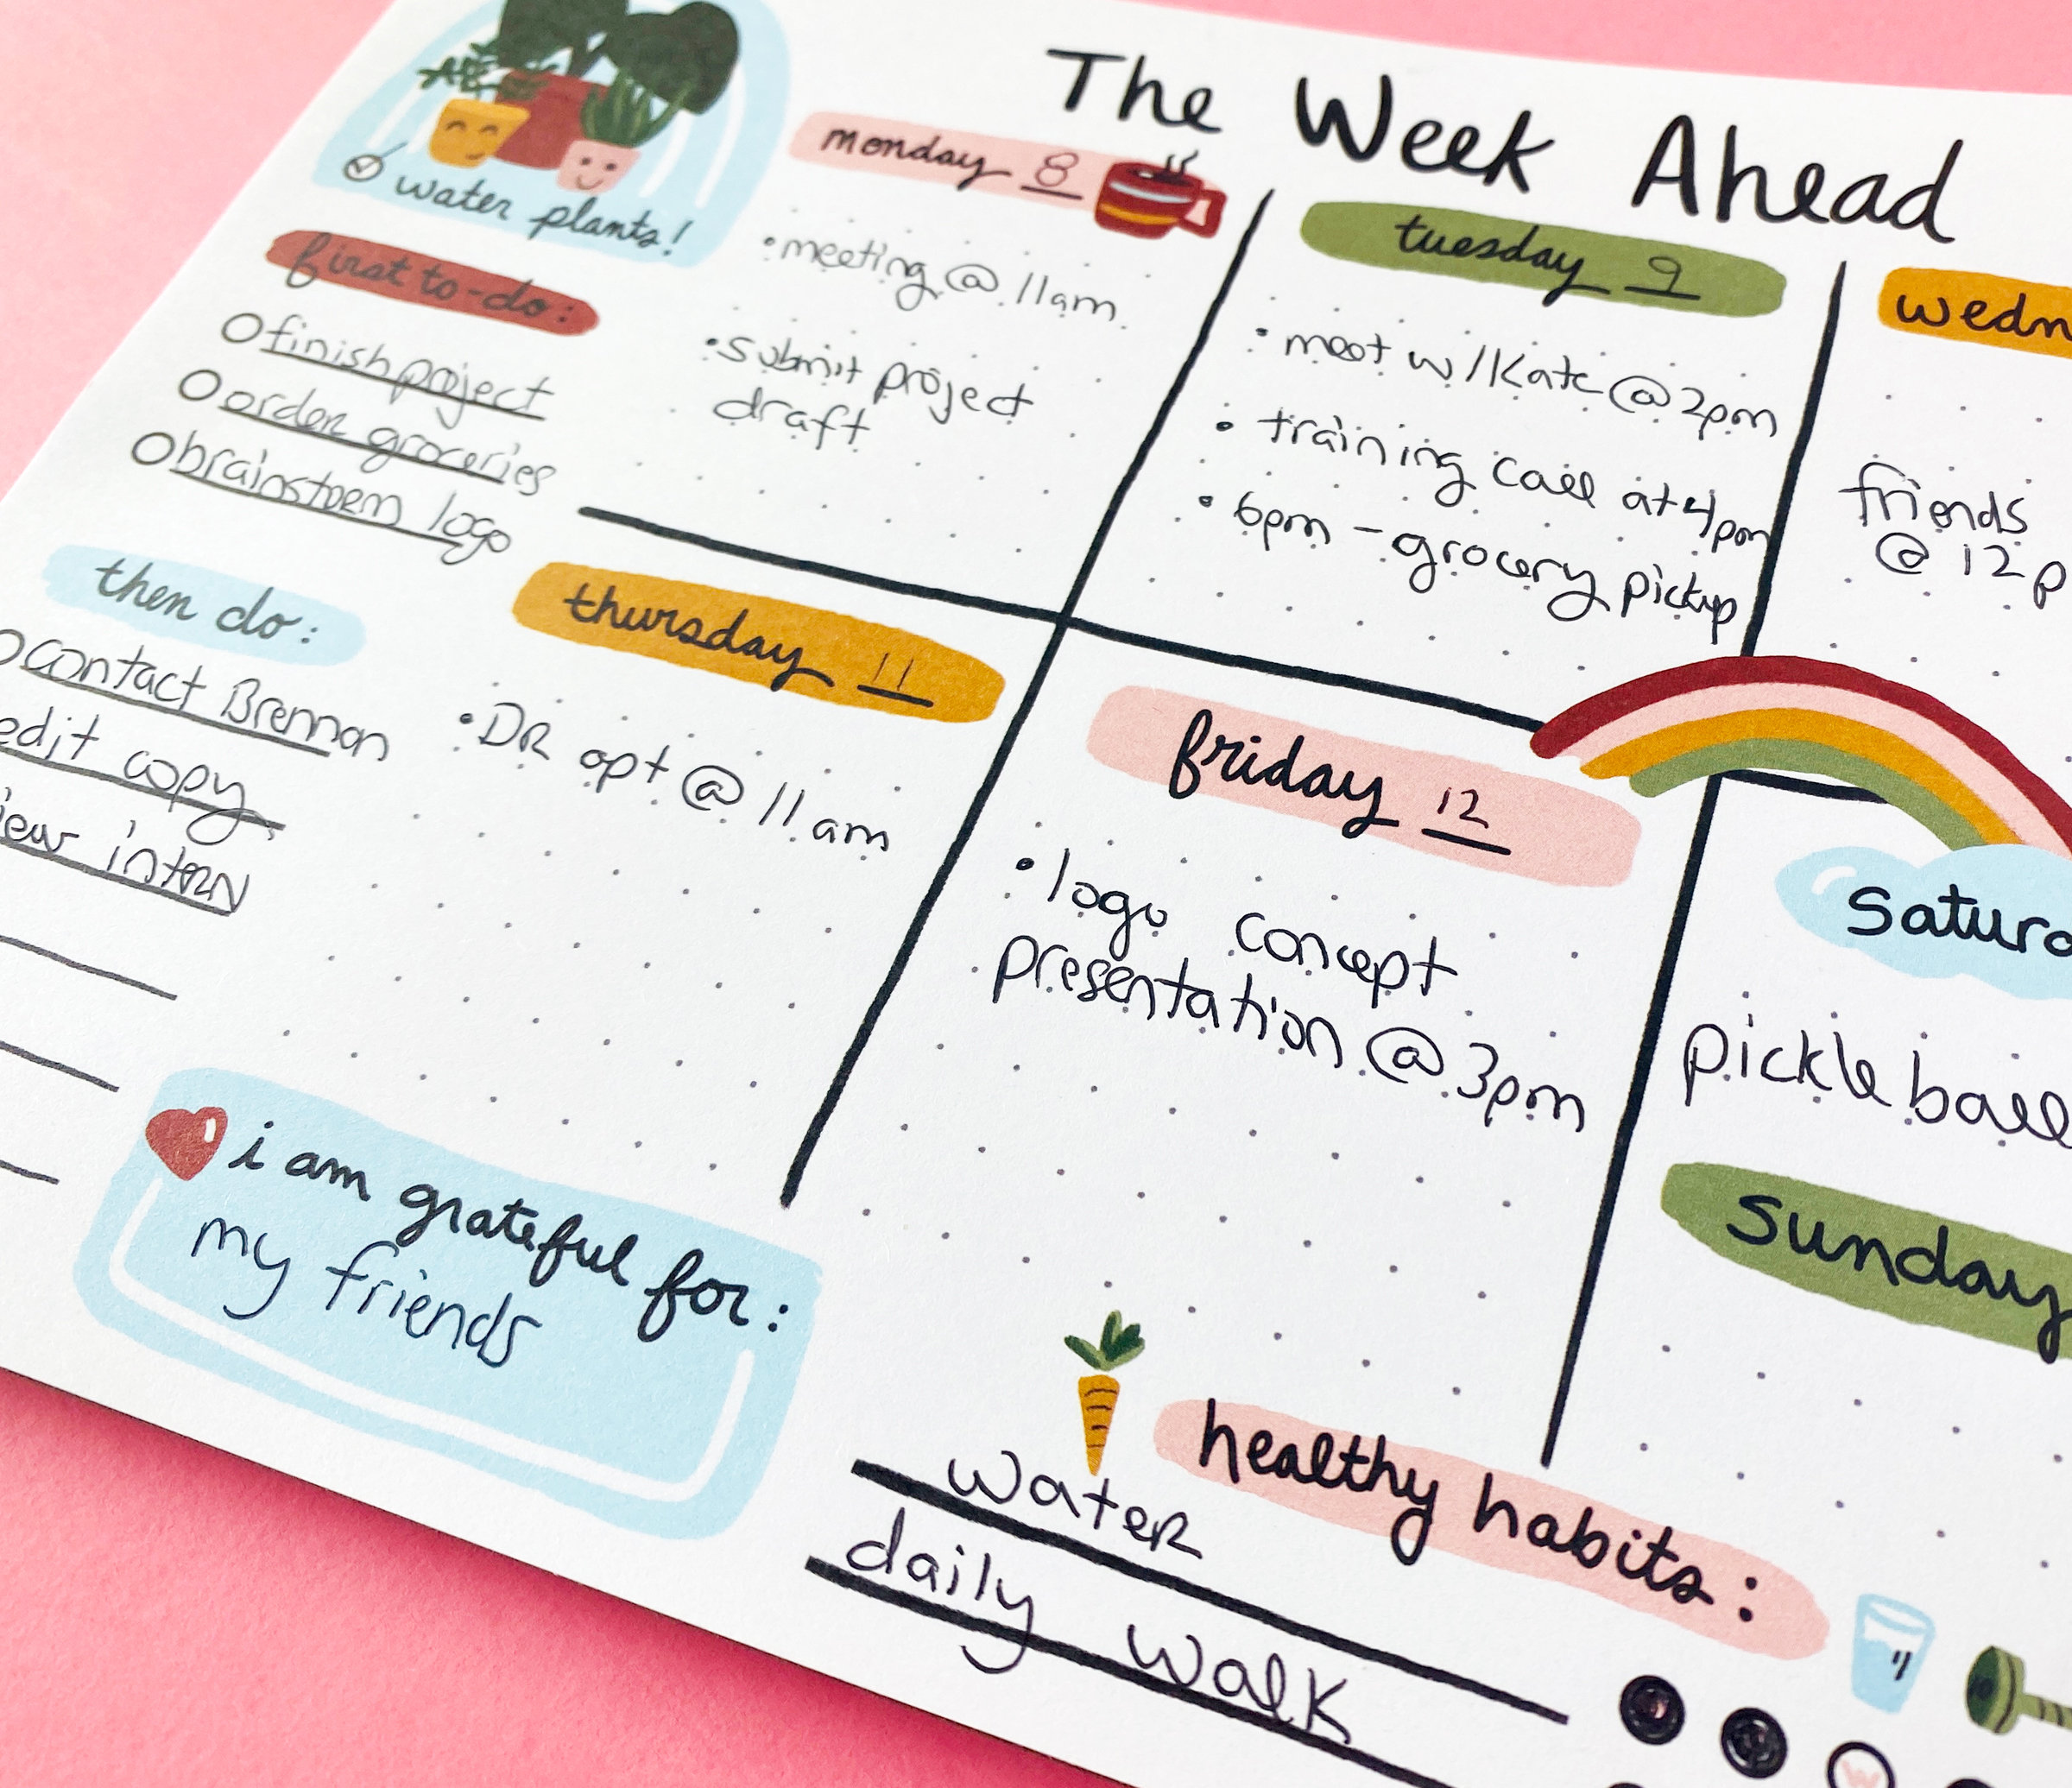 The Week Ahead
water plants!
first to-do:
finish project
order groceries
brainstorm logo
then do:
contact Brennan
edit copy
intern
monday 8
• meeting @ 11am
• submit project
draft
tuesday 9
• meet w/Kate @ 2pm
• training call at 4pm
• 6pm - grocery pickup
wedn
friends
@ 12p
thursday 11
• DR apt @ 11am
friday 12
• logo concept
presentation @ 3pm
satur
pickle ball
sunday
i am grateful for:
my friends
healthy habits:
water
daily walk